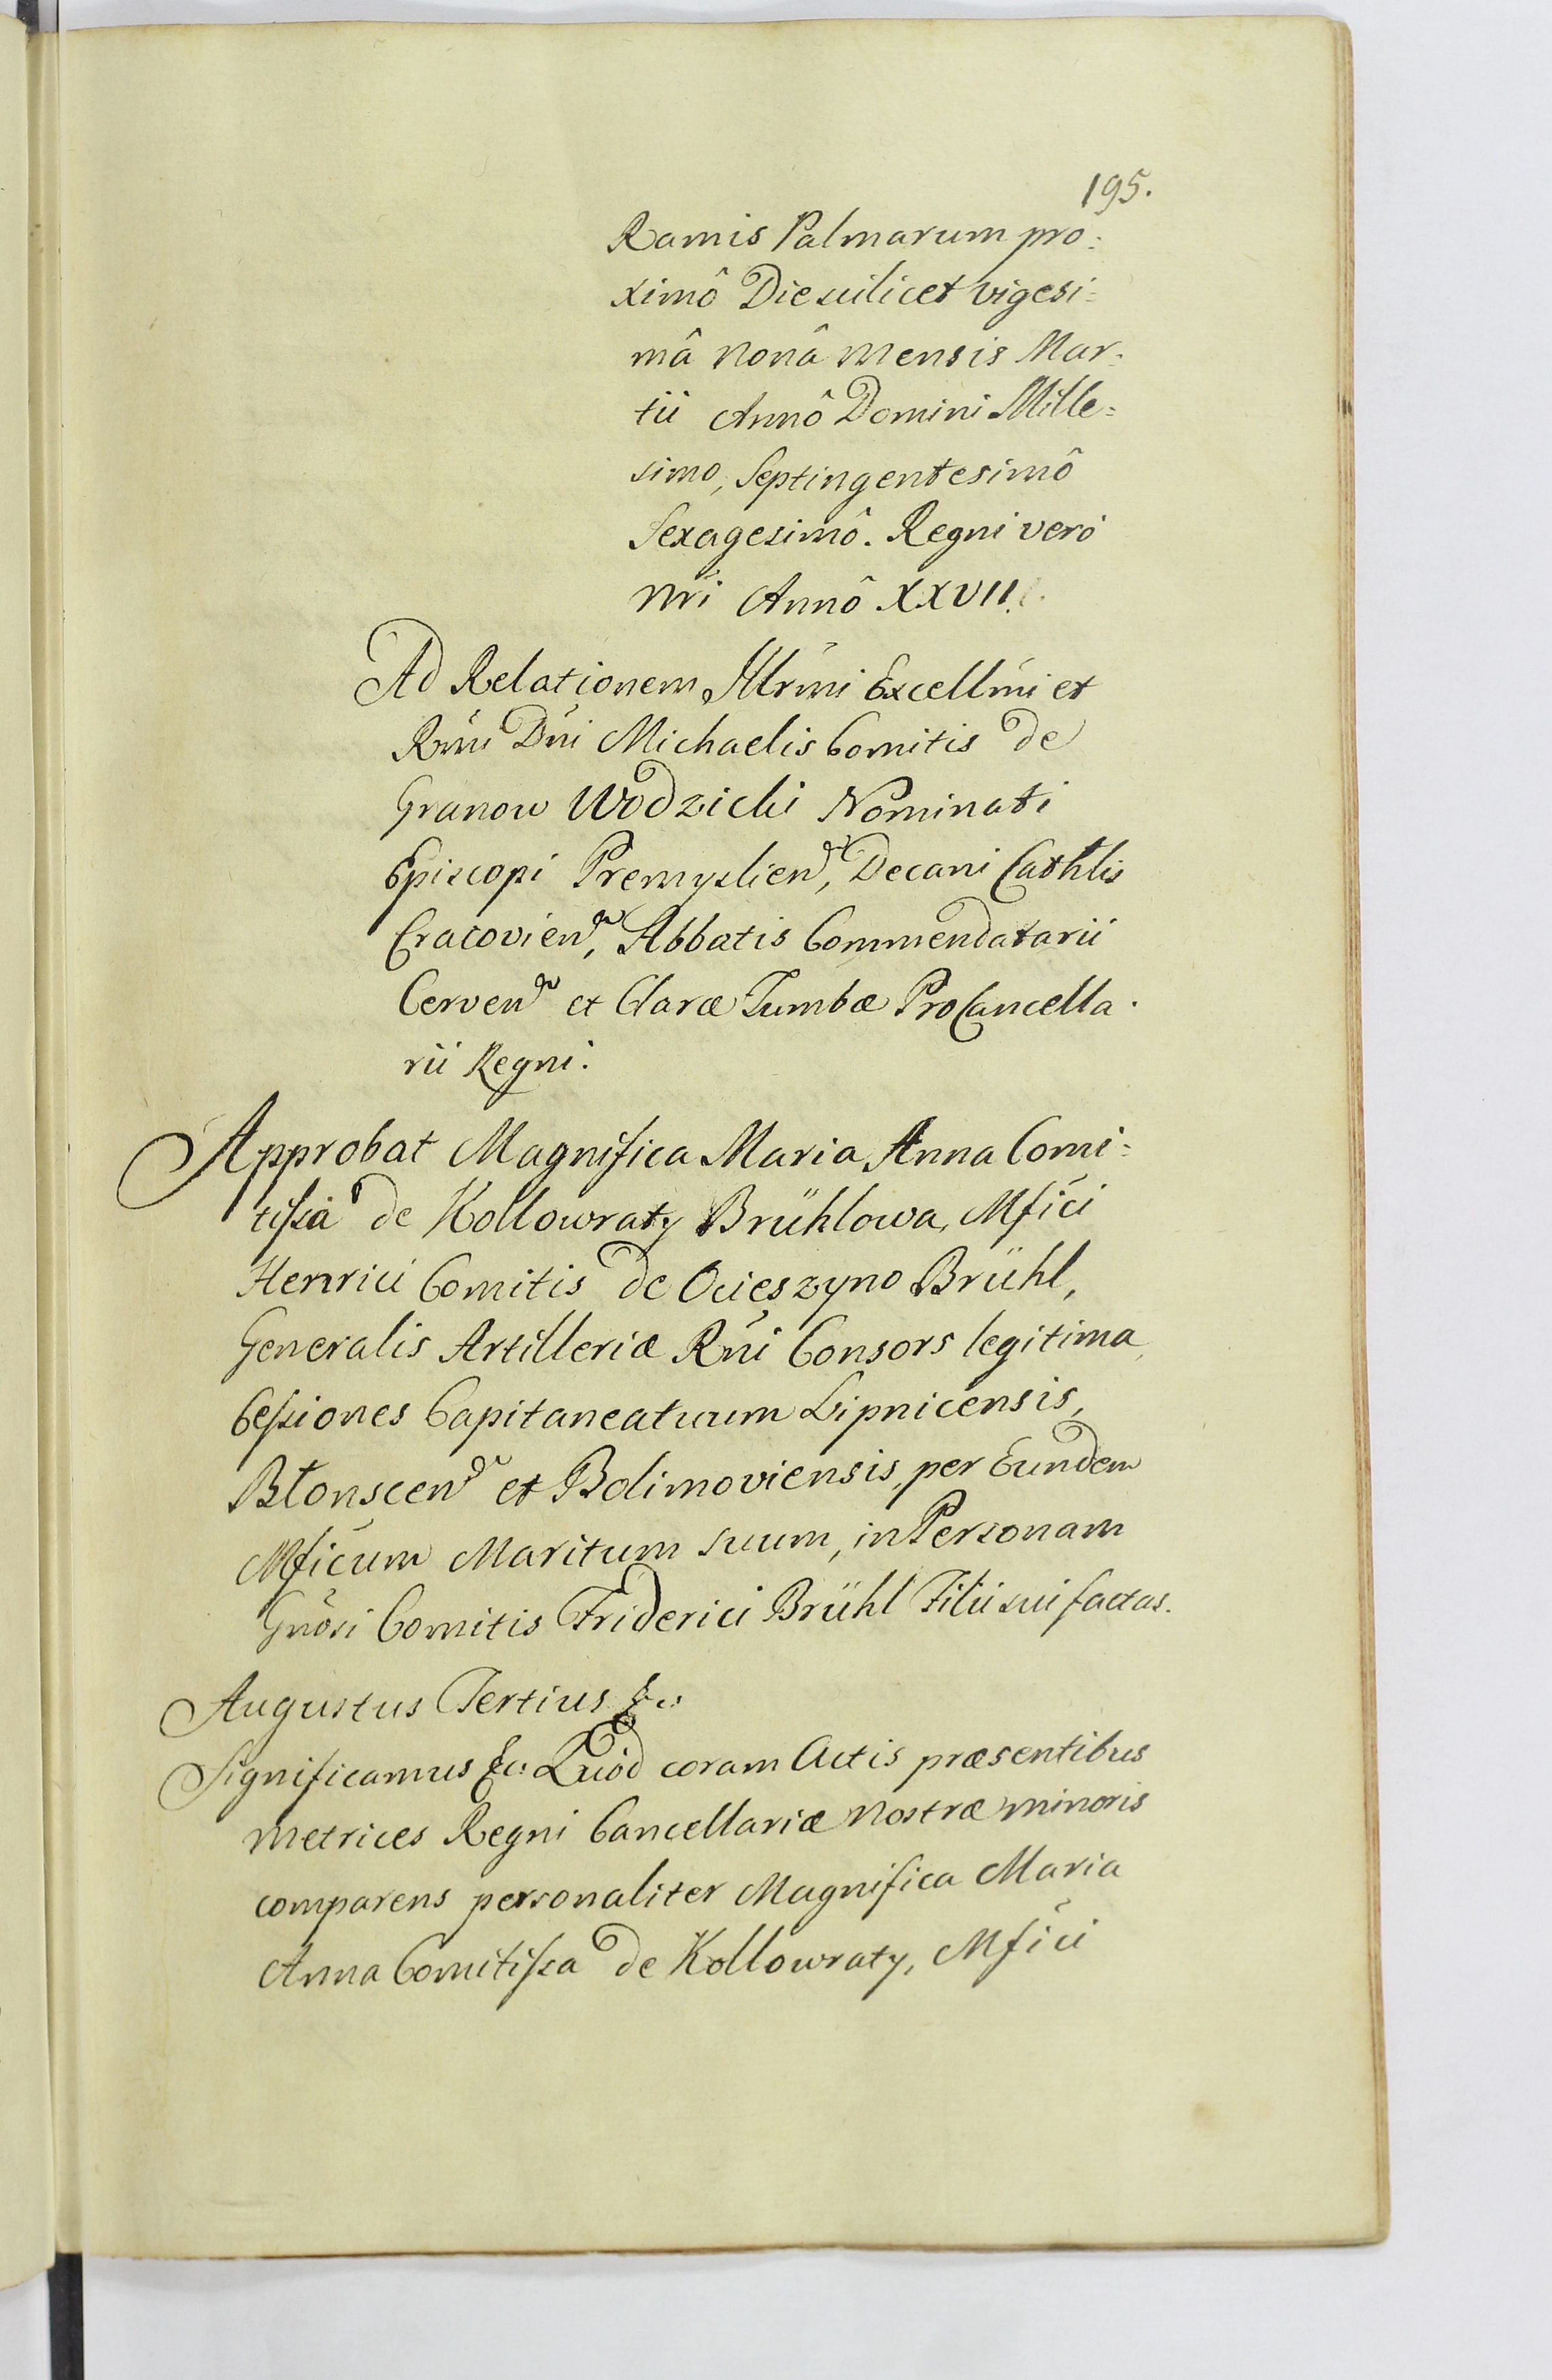 195.
Ramis Palmarum pro:
ximô Die scilicet vigesi=
mâ nonâ mensis Mar:
tii Annô Domini Mille=
simo, Septingentesimô
Sexagesimô. Regni verò
nri Annô XXVII.
Ad Relationem Illrmi Excellmi et
Rmi Dni Michaelis Comitis de
Granow Wodzicki Nominati
Episcopi Premyslien, Decani Cathlis
Cracovien, Abbatis Commendatarii
Cerven et Claræ Tumbæ ProCancella:
rii Regni.
Approbat Magnifica Maria Anna Comi=
tissa de Kollowraty Brühlowa, Mfici
Henrici Comitis de Ocieszyno Brühl,
Generalis Artilleriæ Rni Consors legitima
Cessiones Capitaneatuum Lipnicensis,
Błonscen et Bolimoviensis, per Eundem
Mficum Maritum suum, in Personam
Gnosi Comitis Friderici Brühl Filii sui factas.
Augustus Tertius &c:
Significamus &c: Quòd coram Actis præsentibus
Metrices Regni Cancellariæ Nostræ minoris
comparens personaliter Magnifica Maria
Anna Comitissa de Kollowraty, Mfici